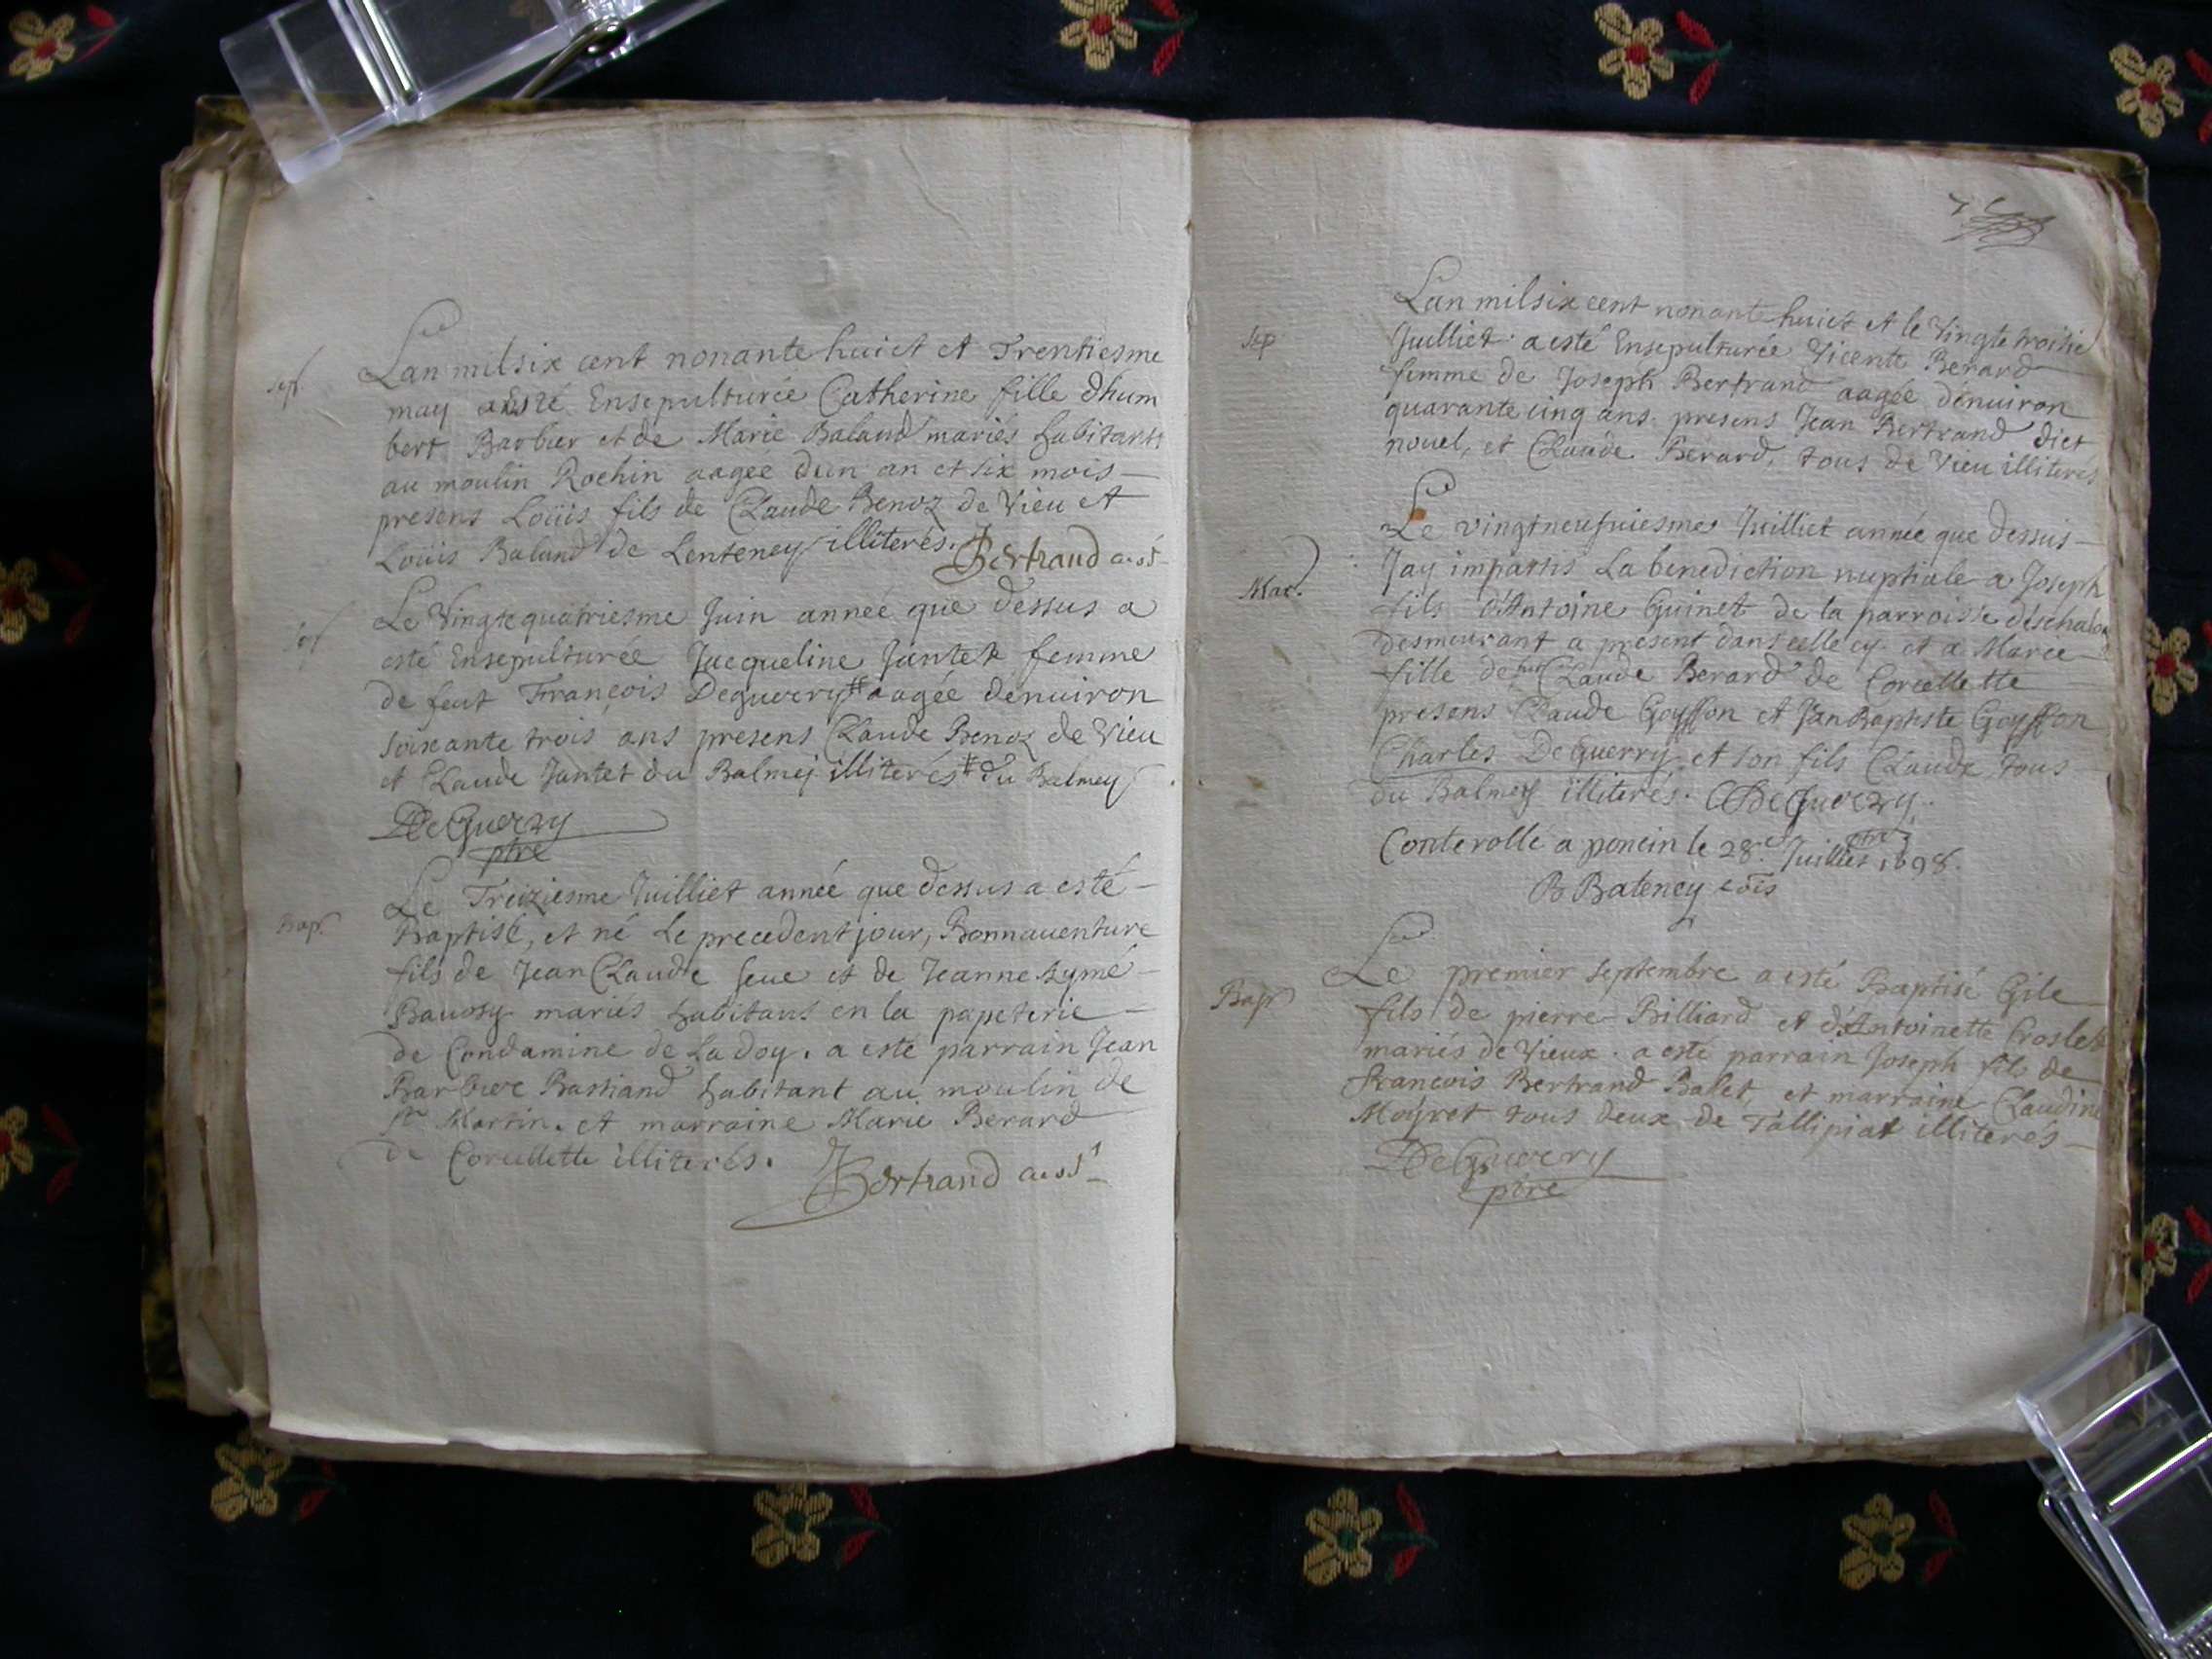 sep.
Lan milsix cent nonante huict et Trentiesme
may a esté Ensepulturée Catherine fille dhum
bert Barbier et de Marie Baland mariés habitants
au moulin Rochin aagée dun an et six mois
presens Loüis fils de Claude Benoz de Vieu et
Loüis Baland de Lenteney illiterés. Bertrand
sep
Le Vingtequatriesme Juin année que dessus a
esté Ensepulturée Jacqueline Jantet femme
de feut François Deguerry # aagée denuiron
soixante trois ans presens Claude Benoz de Vieu
et Claude Jantet du Balmej illiterés # du Balmey
DeGuerry
ptre
Bap.
Le Treiziesme Juilliet année que dessus a esté
Baptisé, et né Le precedent jour, Bonnauenture
fils de Jean Claude seue et de Jeanne Aymé
mariés habitans en la papeterie
de Condamine de La doy. a esté parrain Jean
Barbier Bastiand habitant au moulin de
st Martin. et marraine Marie Berard
de Corcellette illiterés.
Bertrand
Sep
Lan milsix cent nonante huict et le Vingte troisie
Juilliet a esté Ensepulturée Vicente Berard
femme de Joseph Bertrand aagée denuiron
quarante cinq ans. presens Jean Bertrand dict
nouel, et Claude Berard, tous de Vieu illiterés
Mar.
Le vingtneufuiesme Juilliet année que dessus
Jay impartis La benediction nuptiale a Joseph
fils d'Antoine Guinet de la parroisse
desmeurant a present dans celle cy. et a Marie
fille de feu Claude Berard de Corcellette
presens Claude Goyffon et Jan Baptiste Goyffon
Charles DeGuerry et son fils Claude tous
du Balmey illiterés. DeGuerry
ptre
Conterollé a poncin le 28e Juilliet 1698.
B Bateney cõis
Bap
Le premier septembre a esté Baptisé Gile
fils de pierre Billiard et d'Antoinette Croslet
mariés de Vieux. a esté parrain Joseph fils de
françois Bertrand Balet, et marraine Claudine
Moyret tous deux de Tallipiat illiterés
DeGuerry
ptre